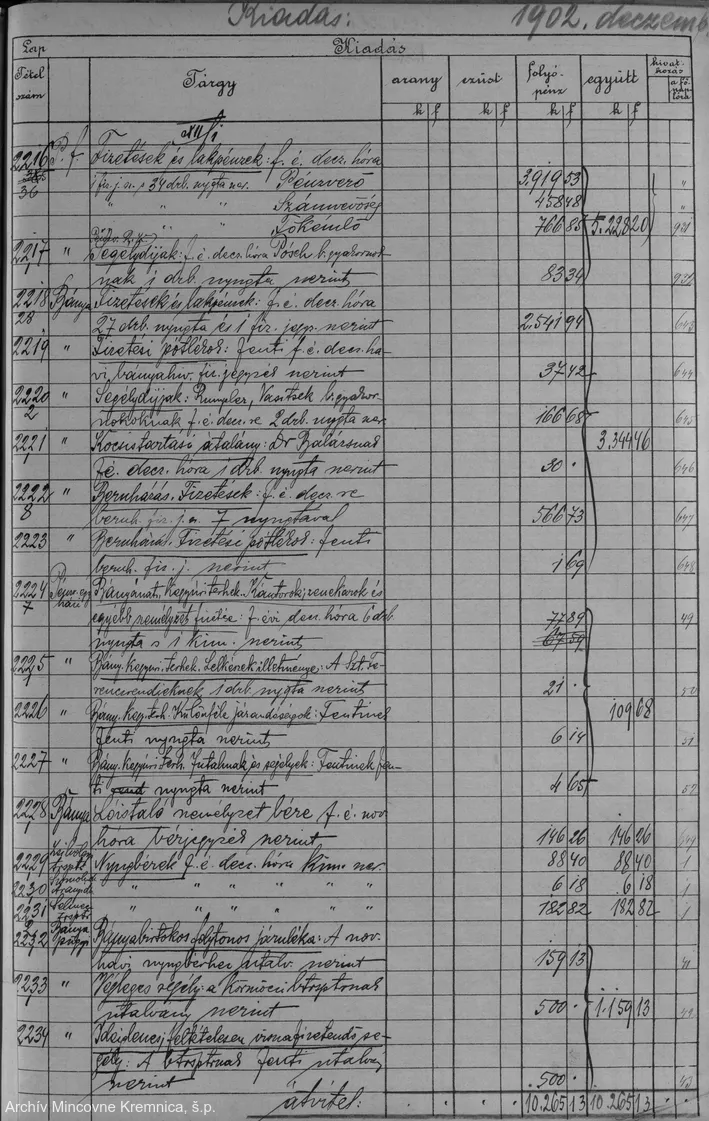 Kiadás: 1902. deczemb
Lap Kiadás
Tétel szám Tárgy arany ezüst folyó-pénz együtt hivat-kozás a fő-naplóra
k f k f k f k f
XII/1
2216 P. f. Fizetések és lakpénzek: f. é. decz. hóra
36 1 fiz. j. s 34 drb. nyugta szer. Pénzverő 3.919 53 "
" " " Számvevőség 458 48 "
" " Főkémlő 766 85 5.228 20
2217 " Segélydíjak: f. é. decz. hóra Pösch b. gyakornok-
nak 1 drb. nyugta szerint 83 34
2218 Bánya Fizetések és lakpénzek: f. é. decz. hóra
28 27 drb. nyugta és 1 fiz. jegyz. szerint 2.541 94 643
2219 " Fizetési pótlékok: fenti f. é. decz. ha-
vi bányahiv. fiz. jegyzék szerint 37 42 644
2220 " Segélydíjak: Rumpler, Vasitsek b. gyakor-
2 nokoknak f. é. dec. re 2 drb. nyugta szer. 166 68 645
2221 " Kocsistartási átalány: Dr Balázsnak 3.344 46
f. é. decz. hóra 1 drb. nyugta szerint 30 · 646
2222 " Beruházás. Fizetések: f. é. decz. re
8 beruh. fiz. j. s. 7 nyugtával 566 73 647
2223 " Beruházás. Fizetési pótlékok: fenti
beruh. fiz. j. szerint 1 69 648
2224 Bányánál. Kegyúri terhek. Kántorok, zenekarok és
7 egyébb személyzet fizetése: f. évi decz. hóra 6 drb. 77 89 49
nyugta s 1 kim. szerint 67 59
2225 " Bány. Kegyúri terhek. Lelkészek illetménye: A Szt Fe-
rencrendieknek 1 drb. nyugta szerint 21 · 50
2226 " Bány. Kegy. terh. Különféle járandóságok: Fentinek 109 68
fenti nyugta szerint 6 14 51
2227 " Bány. Kegyúri terh. Jutalmak és segélyek: Fentinek fen-
ti nyugta szerint 4 65 52
2228 Bánya Lóistáló személyzet bére f. é. nov.
hóra bérjegyzék szerint 146 26 146 26 649
2229 Nyugbérek f. é. decz. hóra kim. szer. 88 40 88 40 1
2230 " " " " " " 6 18 6 18 1
2231 " " " " " " 182 82 182 82 1
2232 Bányabirtokos folytonos járuléka: A nov.
havi nyugbérhez utalv. szerint 159 13 41
2233 " Végleges segély: a Körmöczi btrsptnak
utalvány szerint 500 · 1.159 13 42
2234 " Ideiglenes, feltételesen visszafizetendő se-
gély: A btrsptnak fenti utalvány
szerint 500 · 43
átvitel: · · · · 10.265 13 10.265 13 · ·
Archív Mincovne Kremnica, š.p.